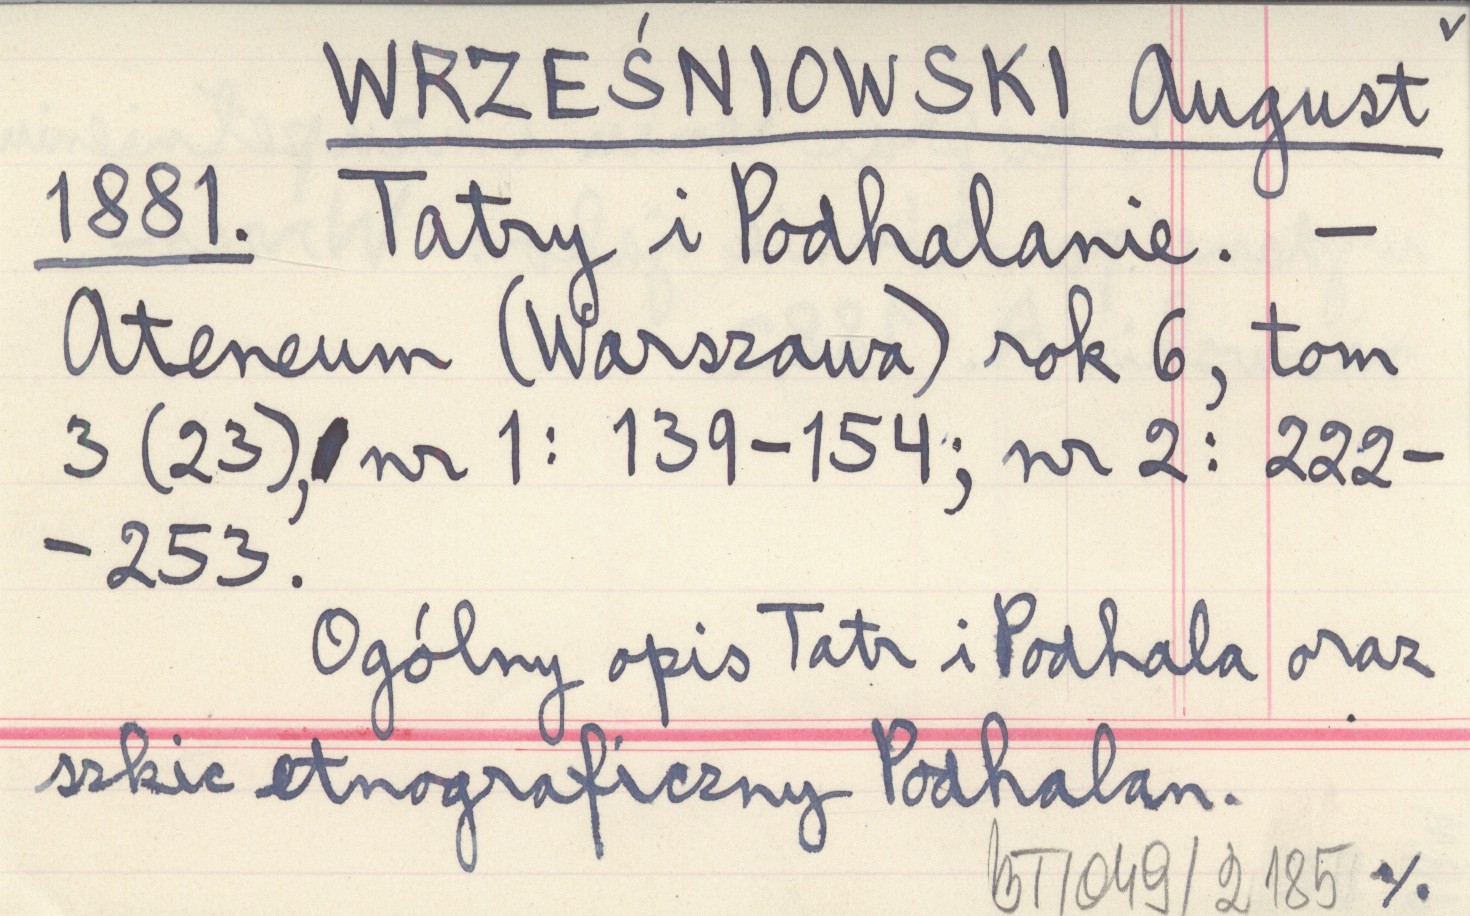 WRZEŚNIOWSKI August
1881. Tatry i Podhalanie. —
Ateneum (Warszawa) rok 6, tom
3 (23), nr 1: 139-154; nr 2: 222-
-253.
Ogólny opis Tatr i Podhala oraz
szkic etnograficzny Podhalan.
BT/049/2185 ./.